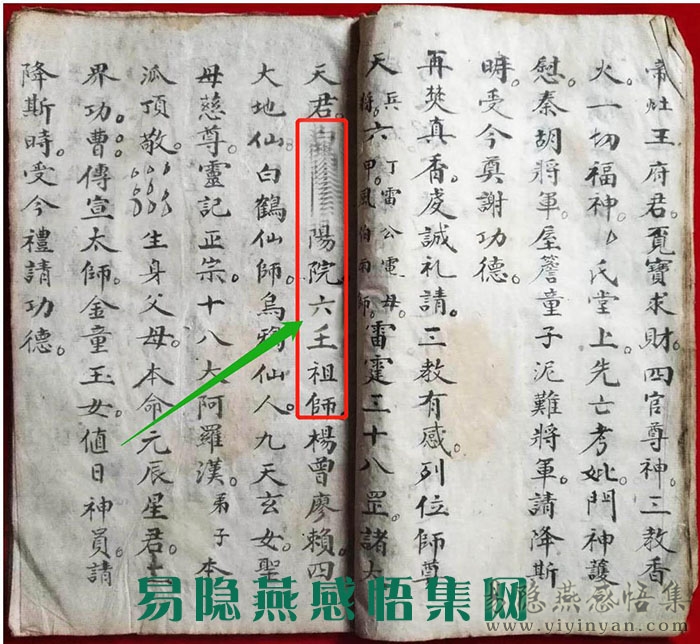 帝灶王府君。覓寶求財。四官尊神。三教香
火。一切福神。氏堂上先亡考妣。門神護
慰。秦胡將軍。屋簷童子。泥難將軍。請降斯
時。受今奠謝功德。
再焚真香。虔誠礼請。三教有感。列位師尊。
天兵天將。六丁六甲。雷公電母。風伯雨師。雷霆三十八罡。諸大
天君。陽院六壬祖師。楊曾廖賴四
大地仙。白鶴仙師。烏鴉仙人。九天玄女聖
母慈尊。靈記正宗。十八大阿羅漢。弟子本
派頂敬。生身父母。本命元辰星君。
界功曹。傳宣太師。金童玉女。值日神員。請
降斯時。受今禮請功德。
易隐燕感悟集网
易隐燕感悟集
www.yiyinyan.com